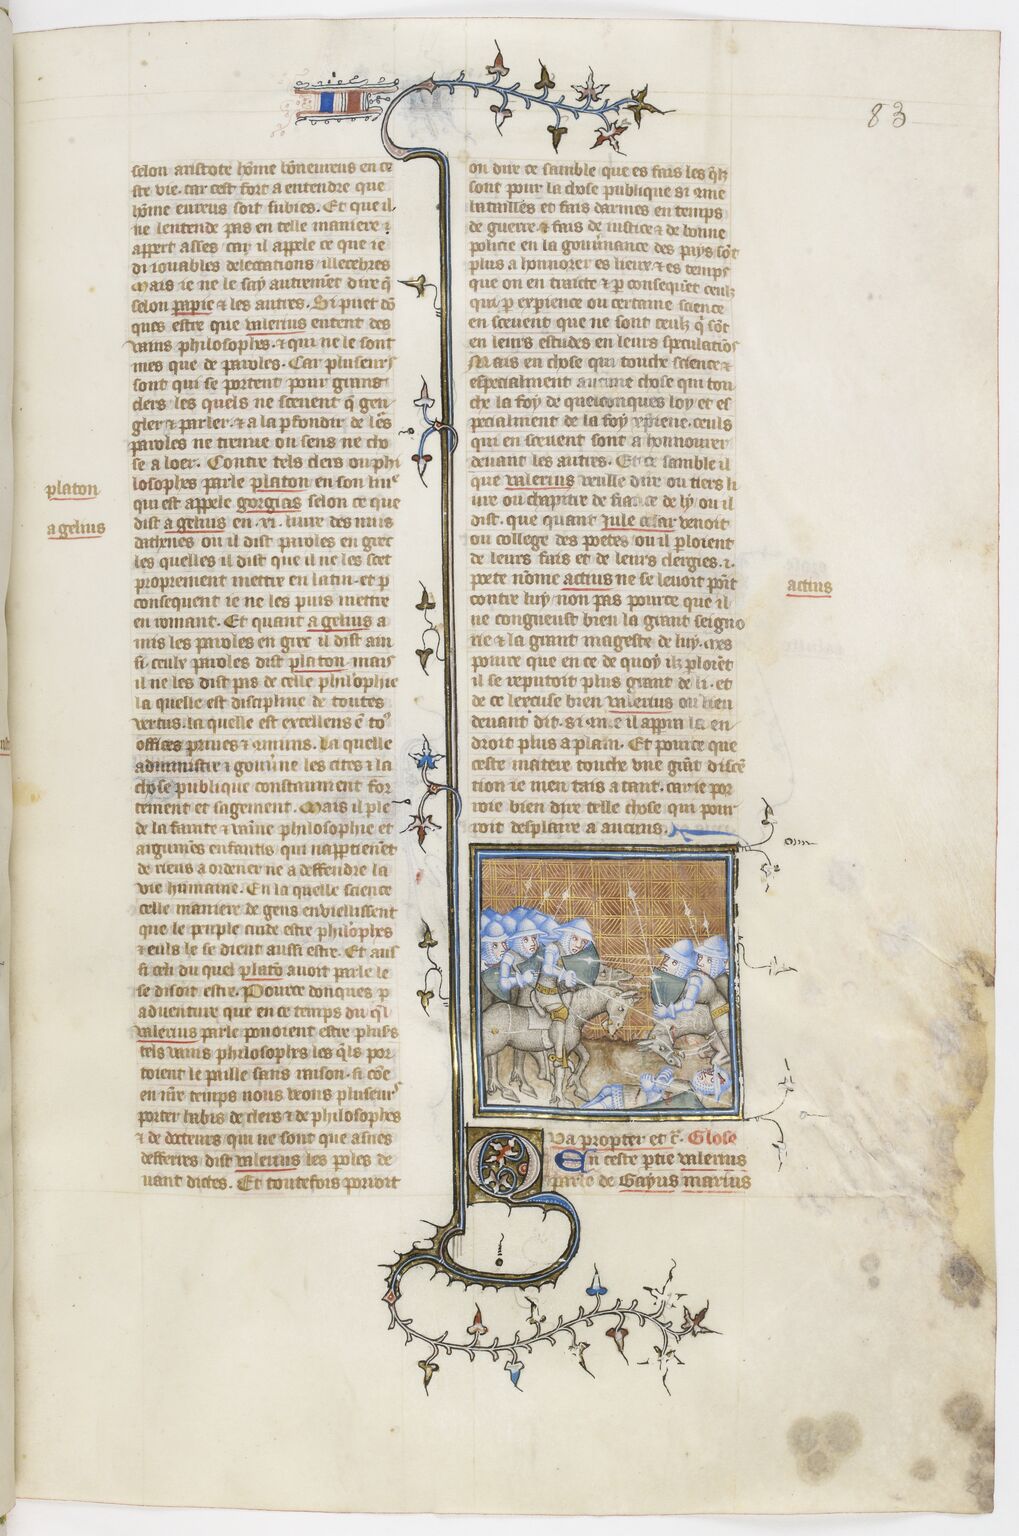 III
83
selon aristote hõme bõneureus en ce
ste vie. car cest fort a entendre que
hõme eureus soit subies. Et que il
ne lentende pas en telle maniere ⁊
appert asses car il appele ce que ie
di iouables delectations illecebres
Mais ie ne le say autremẽt dire q̃
selon papie ⁊ les autres. Si puet dõ
ques estre que valerius entent des
vains philosophes. ⁊ qui ne le sont
mes que de paroles. Car pluseurs
sont qui se portent pour grans
clers les quels ne sceuent q̃ gen
gler ⁊ parler. ⁊ a la pfondir de lẽs
paroles ne treuue on sens ne cho
se a loer. Contre tels clers ou phi
losophes parle platon en son liure
qui est appele gorgias selon ce que
dist a gelius en .vi. liure des nuis
dathenes ou il dist paroles en grec
les quelles il dist que il ne les scet
proprement mettre en latin. et p
consequent ie ne les puis mettre
en romant. Et quant a gelius a
mis les paroles en grec il dist ain
si. ceulz paroles dist platon mais
il ne les dist pas de celle philosophie
la quelle est discipline de toutes
vertus. la quelle est excellens ẽ to9
offices priues ⁊ cõmuns. La quelle
administre ⁊ gouuerne les cites ⁊ la
chose publique constaument for
tement et sagement. Mais il ple
de la fainte ⁊ vaine philosophie et
argumẽs enfantis qui nappartienẽt
de riens a ordener ne a deffendre la
vie humaine. En la quelle science
celle maniere de gens enviellissent
que le peuple cuide estre philosophes
⁊ euls le se dient aussi estre. Et aus
si celi du quel platõ auoit parle le
se disoit estre. Pource donques p
aduenture que en ce temps du q̃l
valerius parle pouoient estre pluss
tels vains philosophes les q̃ls por
toient le paille sans raison. si cõe
en nr̃e temps nous veons pluseurs
porter habis de clers ⁊ de philosophes
⁊ de docteurs qui ne sont que asnes
defferres dist valerius les poles de
uant dictes. Et toutefois pouoit
platon
a gelius
on dire ce samble que es fais les q̃lz
sont pour la chose publique si cõme
batailles et fais darmes en temps
de guerre. ⁊ fais de iustice ⁊ de bonne
policie en la gouuernance des pays sõt
plus a honnorer es lieux ⁊ es temps
que on en traite ⁊ p consequẽt ceulz
qui p expience ou certaine science
en sceuent que ne sont ceulz q̃ sõt
en leurs estudes en leurs speculatiõs
Mais en chose qui touche science ⁊
especialment aucune chose qui tou
che la foy de quelconques loy et es
pecialment de la foy xpiene. ceuls
qui en sceuent sont a honnourer
deuant les autres. Et ce samble il
que valerius veulle dire ou tiers li
ure ou chapitre de fiance de ly ou il
dist. que quant Jule cesar venoit
ou college des poetes ou il ploient
de leurs fais et de leurs clergies. i.
poete nõme actius ne se leuoit poĩt
contre luy non pas pource que il
ne congneust bien la grant seigno
rie ⁊ la grant mageste de luy. mes
pource que en ce de quoy ilz ploiẽt
il se reputoit plus grant de li. et
de ce lexcuse bien valerius ou lieu
deuant dit. si cõme il apperra la en
droit plus a plain. Et pource que
ceste matere touche vne grãt discẽ
tion ie men tais a tant. car ie por
roie bien dire telle chose qui pour
roit desplaire a aucuns.
actius
Qua propter et c̃. Glose
En ceste ptie valerius
parle de Gayus marius